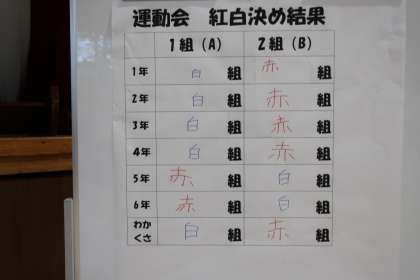 運動会 紅白決め結果
1組(A) 2組(B)
1年 白組 赤組
2年 白組 赤組
3年 白組 赤組
4年 白組 赤組
5年 赤組 白組
6年 赤組 白組
わかくさ 白組 赤組